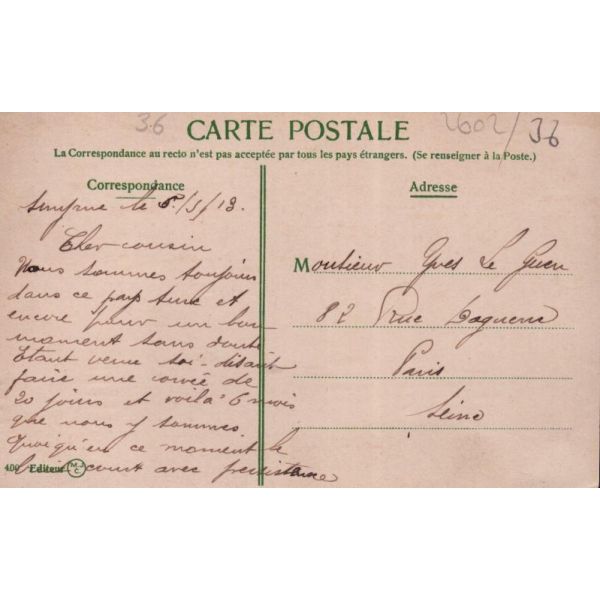 36
2602/36
CARTE POSTALE
La Correspondance au recto n'est pas acceptée par tous les pays étrangers. (Se renseigner à la Poste.)
Correspondance
Smyrne le 5/5/13.
Cher cousin
Nous sommes toujours
dans ce pays turc et
encore pour un bon
moment sans doute
Etant venu soi-disant
faire une corvée de
20 jours et voilà 6 mois
que nous y sommes
Quoiqu'en ce moment le
court avec persistance
400 Editeur M.J.C.
Adresse
Monsieur Yves Le Guen
82 Rue Daguerre
Paris
Seine